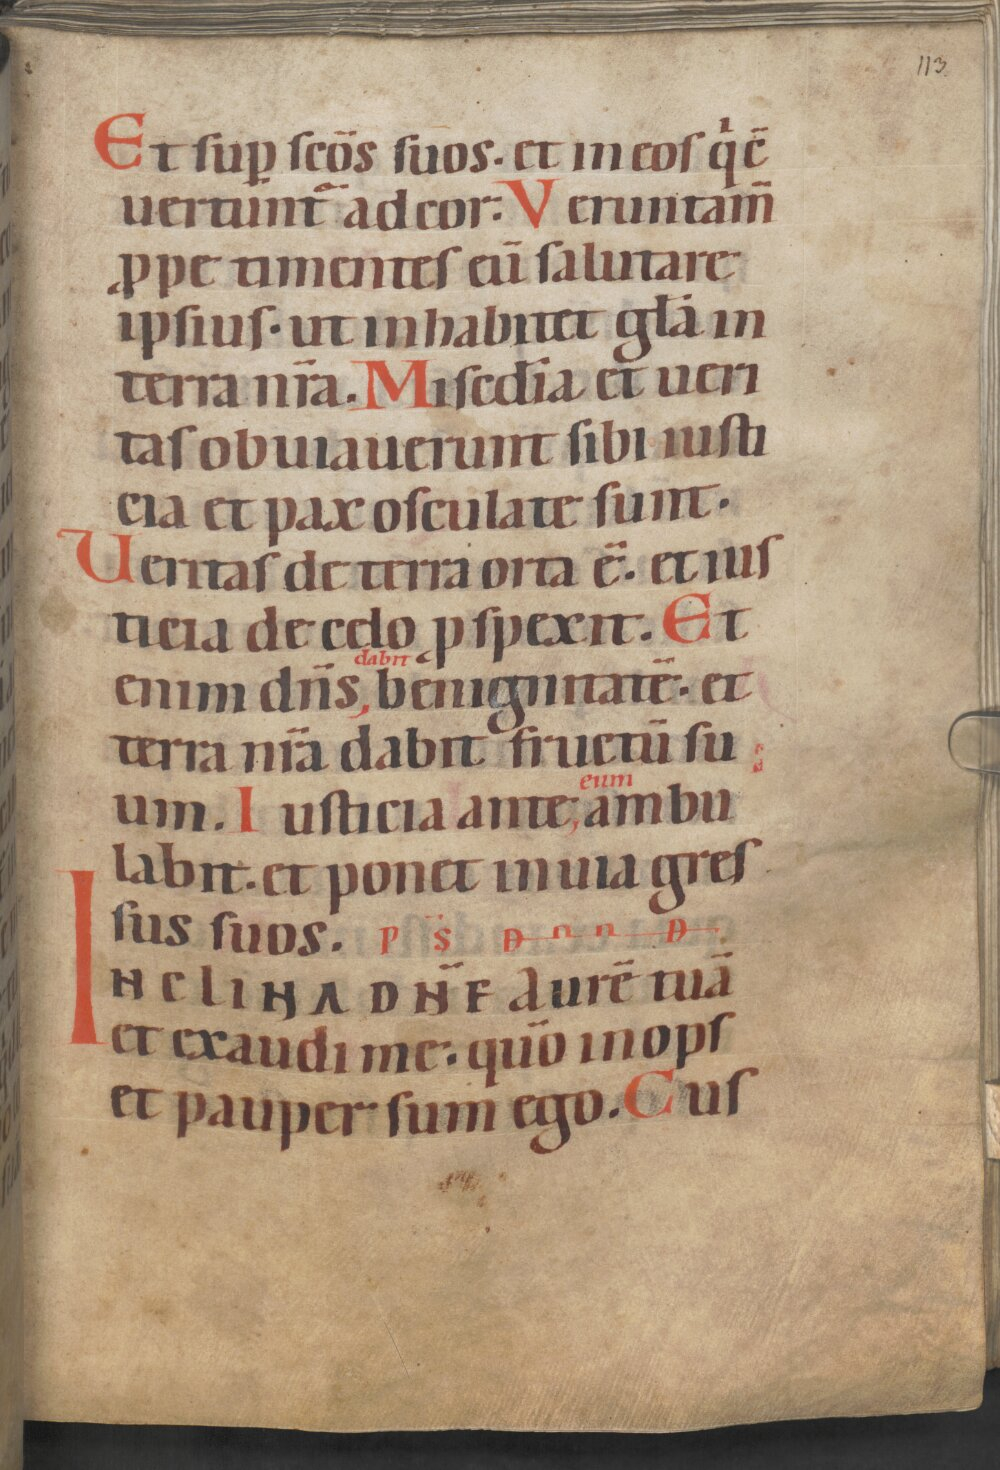 113
Et sup̲ sc̅o̅s suos. et in eos qͥ c̅
uertunt̅ ad cor: Veruntam̅
ꝓpe timentes eu̅ salutare
ipsius. ut inhabitet gl̅a in
terra nr̅a. Misedi̅a et ueri
tas obuiauerunt sibi iusti
cia et pax osculate sunt.
Ueritas de terra orta e̅. et ius
ticia de celo ꝓspexit. Et
dabit
enim dn̅s, benignitate̅. et
terra nr̅a dabit fructu̅ su
eum
um. Iusticia ante, ambu
labit. et ponet in uia gres
sus suos. P S D D
INCLINA DN̅E aure̅ tua̅
et exaudi me. quo̅ inops
et pauper sum ego. Cus